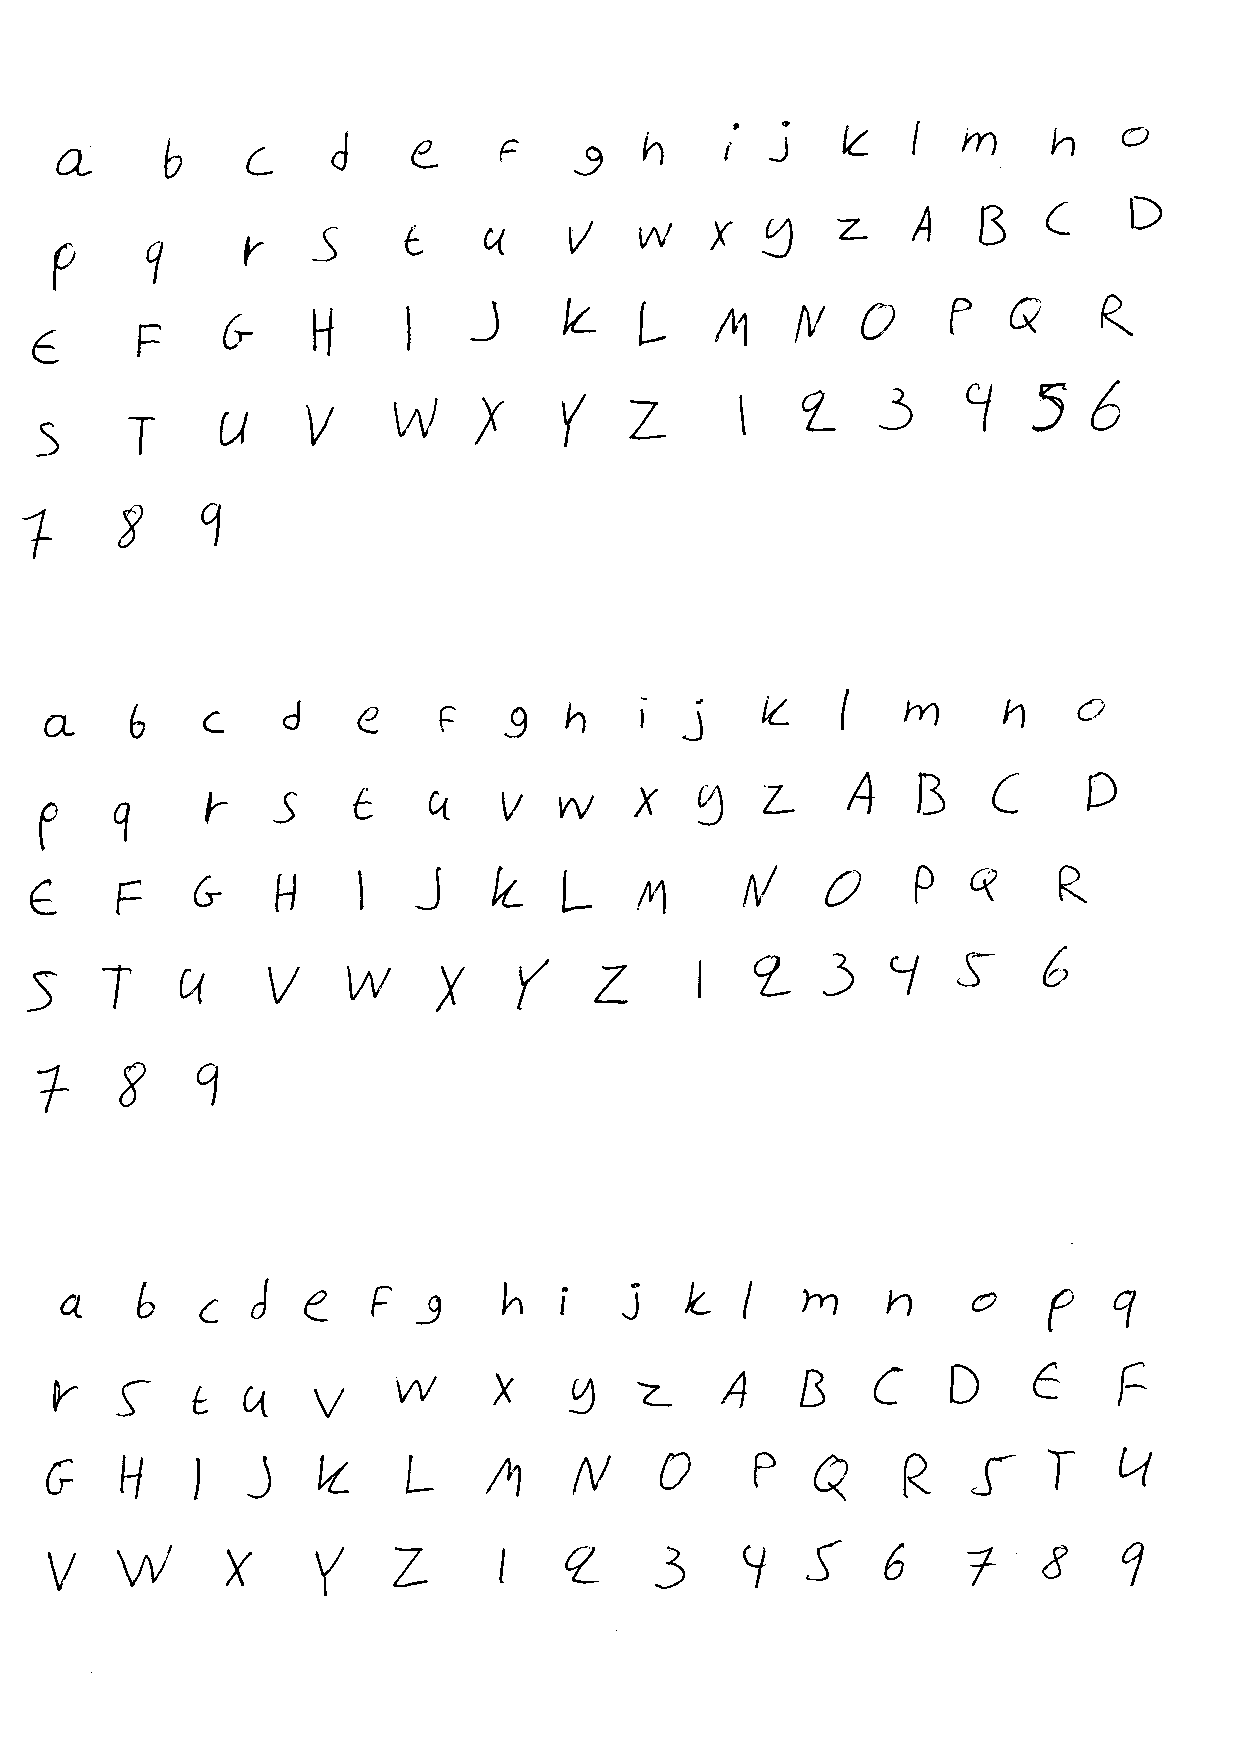 a b c d e f g h i j k l m n o
p q r s t u v w x y z A B C D
E F G H I J K L M N O P Q R
S T U V W X Y Z 1 2 3 4 5 6
7 8 9
a b c d e f g h i j k l m n o
p q r s t u v w x y z A B C D
E F G H I J K L M N O P Q R
S T U V W X Y Z 1 2 3 4 5 6
7 8 9
a b c d e f g h i j k l m n o p q
r s t u v w x y z A B C D E F
G H I J K L M N O P Q R S T U
V W X Y Z 1 2 3 4 5 6 7 8 9